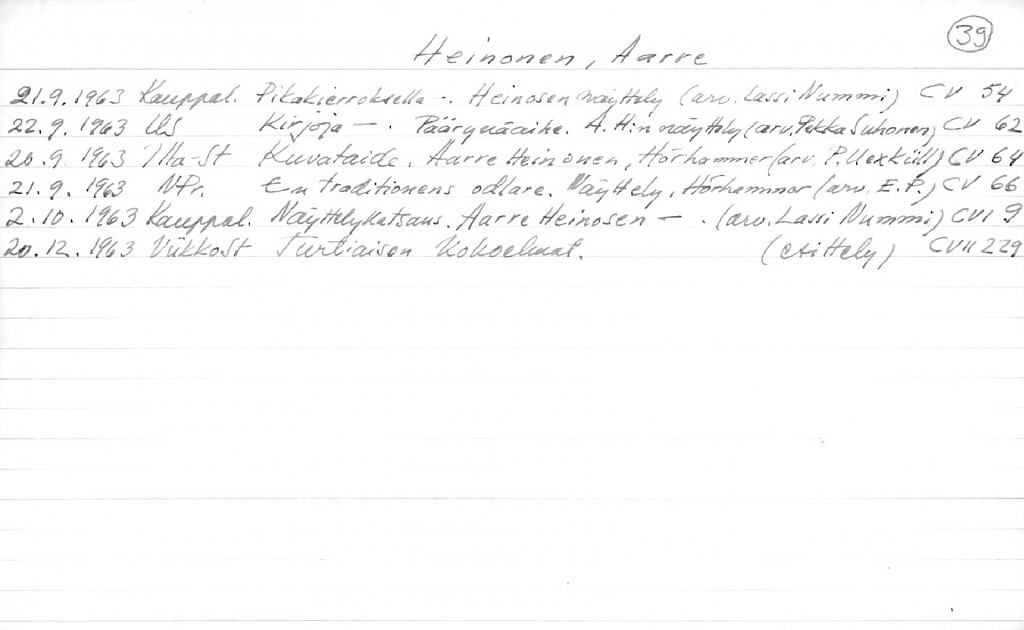 39
Heinonen, Aarre
21.9.1963 Kauppal. Pikakierroksella -. Heinosen näyttely (arv. Lassi Nummi) CV 54
22.9.1963 US Kirjoja —. Päärynäaihe. A. H:n näyttely (arv. Pekka Suhonen) CV 62
20.9.1963 Ilta-St Kuvataide. Aarre Heinonen, Hörhammer (arv. P. Uexküll) CV 64
21.9.1963 NPr. En traditionens odlare. Näyttely, Hörhammer (arv. E.P.) CV 66
2.10.1963 Kauppal. Näyttelykatsaus. Aarre Heinosen — . (arv. Lassi Nummi) CVI 9
20.12.1963 ViikkoSt Turtiaisen kokoelmat. (esittely) CVII 229